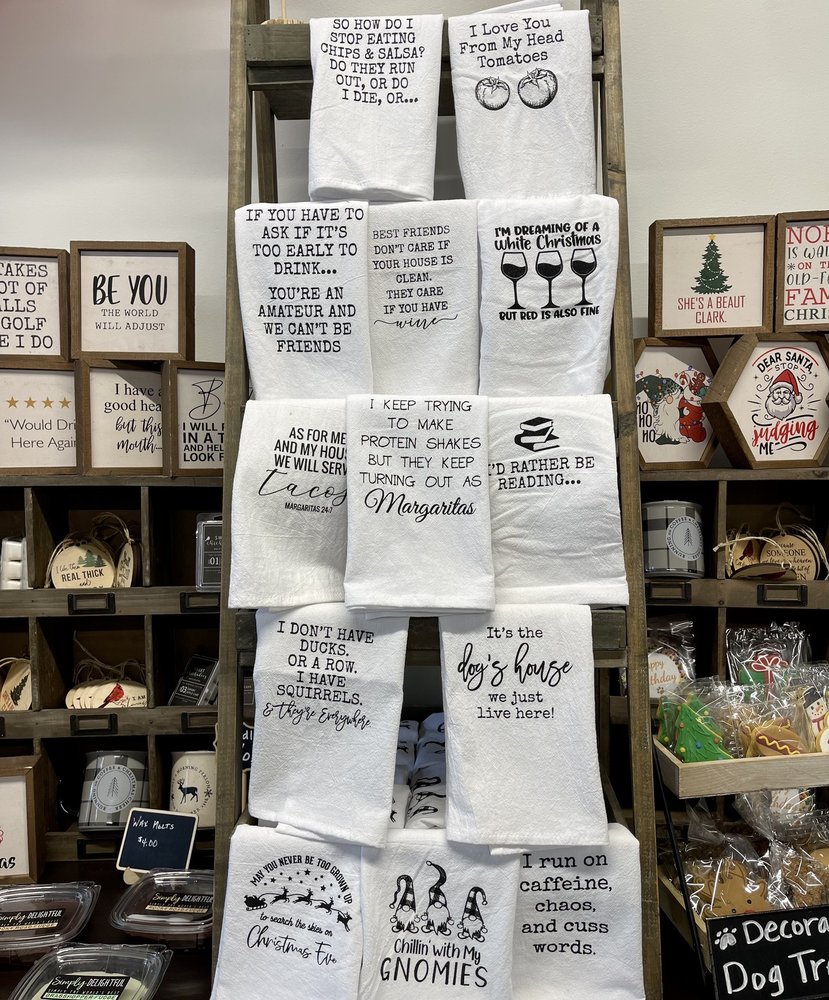 SO HOW DO I
STOP EATING
CHIPS & SALSA?
DO THEY RUN
OUT, OR DO
I DIE, OR...
I Love You
From My Head
Tomatoes
IF YOU HAVE TO
ASK IF IT'S
TOO EARLY TO
DRINK...
YOU'RE AN
AMATEUR AND
WE CAN'T BE
FRIENDS
BEST FRIENDS
DON'T CARE IF
YOUR HOUSE IS
CLEAN.
THEY CARE
IF YOU HAVE
wine
I'M DREAMING OF A
White Christmas
BUT RED IS ALSO FINE
TAKES
LOT OF
GOLF
E I DO
BE YOU
THE WORLD
WILL ADJUST
"Would Dri
Here Again
I have a
good hea
but this
mouth...
I WILL
IN A T
AND HEL
LOOK F
SHE'S A BEAUT
CLARK.
NOR
IS WAL
ON TH
OLD-F
FAM
CHRI
HO
HO
HO
DEAR SANTA,
STOP
judging
ME
AS FOR ME
AND MY HOUS
WE WILL SERV
tacos
MARGARITAS 24-7
I KEEP TRYING
TO MAKE
PROTEIN SHAKES
BUT THEY KEEP
TURNING OUT AS
Margaritas
I'D RATHER BE
READING...
I like them
REAL THICK
and
I DON'T HAVE
DUCKS.
OR A ROW.
I HAVE
SQUIRRELS.
& They're Everywhere
It's the
dog's house
we just
live here!
SOMEONE
I AM
Birthday
WAX MELTS
$4.00
MAY YOU NEVER BE TOO GROWN UP
to search the skies on
Christmas Eve
Chillin' with My
GNOMIES
I run on
caffeine,
chaos,
and cuss
words.
Simply DELIGHTFUL
Simply DELIGHTFUL
Simply DELIGHTFUL
GRASSHOPPER FUDGE
Decora
Dog Tre